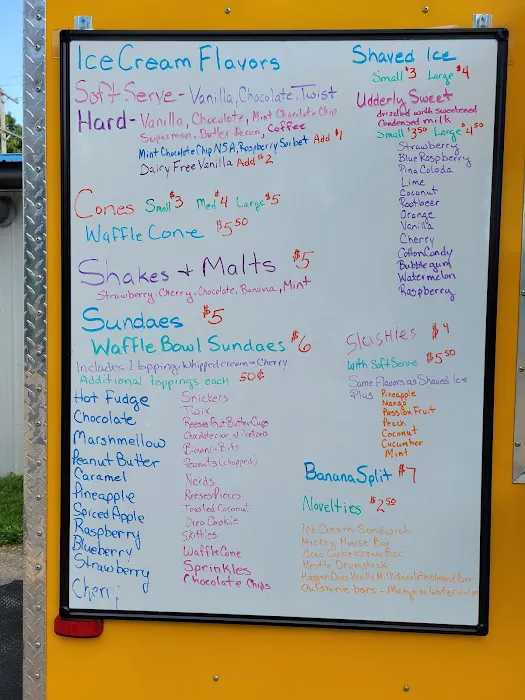 Ice Cream Flavors
Soft-Serve - Vanilla, Chocolate, Twist
Hard - Vanilla, Chocolate, Mint Chocolate Chip
Superman, Butter Pecan, Coffee
Mint Chocolate Chip NSA, Raspberry Sorbet Add $1
Dairy Free Vanilla Add $2
Cones Small $3 Med $4 Large $5
Waffle Cone $5.50
Shakes + Malts $5
Strawberry, Cherry, Chocolate, Banana, Mint
Sundaes $5
Waffle Bowl Sundaes $6
Includes 1 topping, Whipped cream + Cherry
Additional toppings each 50¢
Hot Fudge
Chocolate
Marshmellow
Peanut Butter
Caramel
Pineapple
Spiced Apple
Raspberry
Blueberry
Strawberry
Cherry
Snickers
Twix
Reeses Peanut Butter Cups
Chocolate covered Pretzels
Brownie Bits
Peanuts (chopped)
Nerds
Reeses Pieces
Toasted Coconut
Oreo Cookie
Skittles
Waffle Cone
Sprinkles
Chocolate Chips
Shaved Ice
Small $3 Large $4
Udderly Sweet
drizzled with sweetened
condensed milk
Small $3.50 Large $4.50
Strawberry
Blue Raspberry
Pina Colada
Lime
Coconut
Rootbeer
Orange
Vanilla
Cherry
Cotton Candy
Bubblegum
Watermelon
Raspberry
Slushies $4
with Soft Serve $5.50
Same Flavors as Shaved Ice
Plus Pineapple
Mango
Passion Fruit
Peach
Coconut
Cucumber
Mint
Banana Split $7
Novelties $2.50
Ice Cream Sandwich
Mickey Mouse Bar
Oreo Cookie Cream Bar
Nestle Drumstick
Haagen Daas Vanilla Milk Chocolate Almond Bar
Outshine bars - Mango or Watermelon